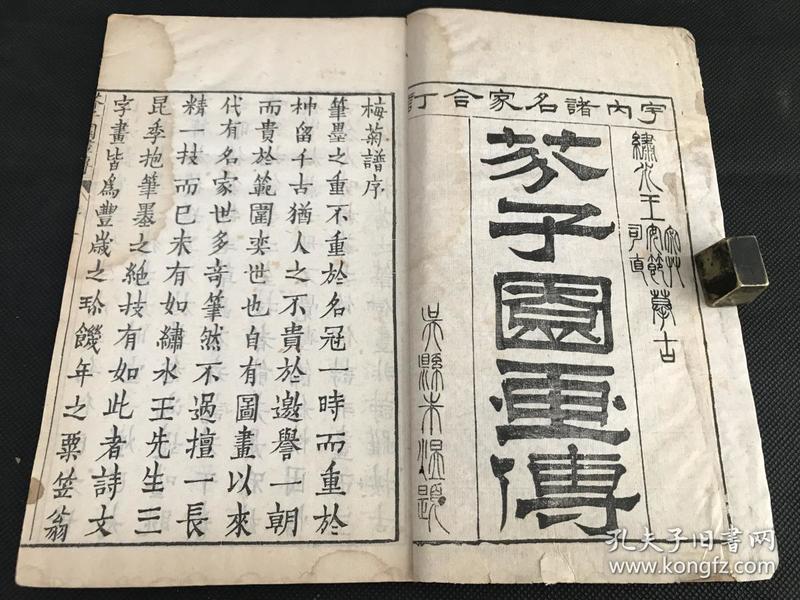 宇內諸名家合訂
繡水王
安節
宓草
司直
摹古
芥子園畫傳
吳縣朱涅題
梅菊譜序
筆墨之重不重於名冠一時而重於
神留千古猶人之不貴於邀譽一朝
而貴於範圍奕世也自有圖畫以來
代有名家世多奇筆然不過擅一長
精一技而已未有如繡水王先生三
昆季抱筆墨之絕技有如此者詩文
字畫皆爲豐歲之珎饑年之粟笠翁
孔夫子旧书网
www.kongfz.com